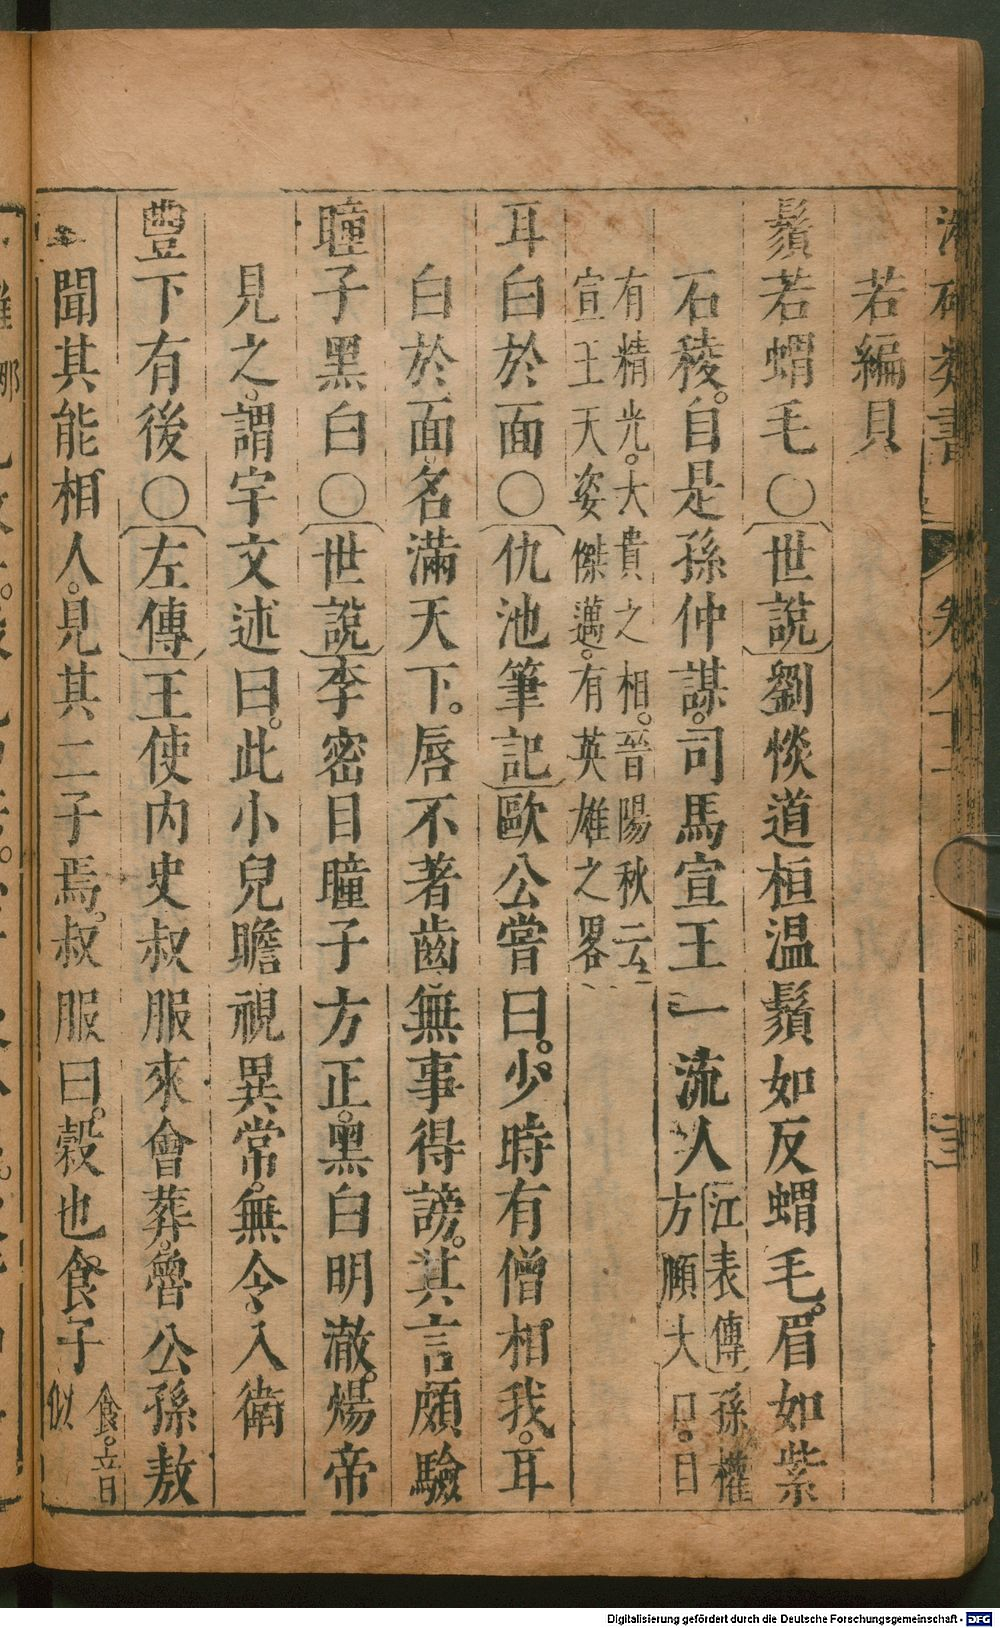 若編貝
鬚若蝟毛〇世說劉惔道桓温鬚如反蝟毛。眉如紫
石稜。自是孫仲謀。司馬宣王一流人江表傳孫權方頤大口。目
有精光。大貴之相。晉陽秋云宣王天姿傑邁。有英雄之畧
耳白於面〇仇池筆記歐公嘗曰。少時有僧相我。耳
白於面、名滿天下。唇不著齒、無事得謗。其言頗驗
瞳子黑白〇世說李密目瞳子方正。黑白明澈。煬帝
見之。謂宇文述曰。此小兒瞻視異常。無令入衛
豐下有後〇左傳王使内史叔服來會葬。魯公孫敖
聞其能相人。見其二子焉。叔服曰。榖也食子食。音似
Digitalisierung gefördert durch die Deutsche Forschungsgemeinschaft - DFG